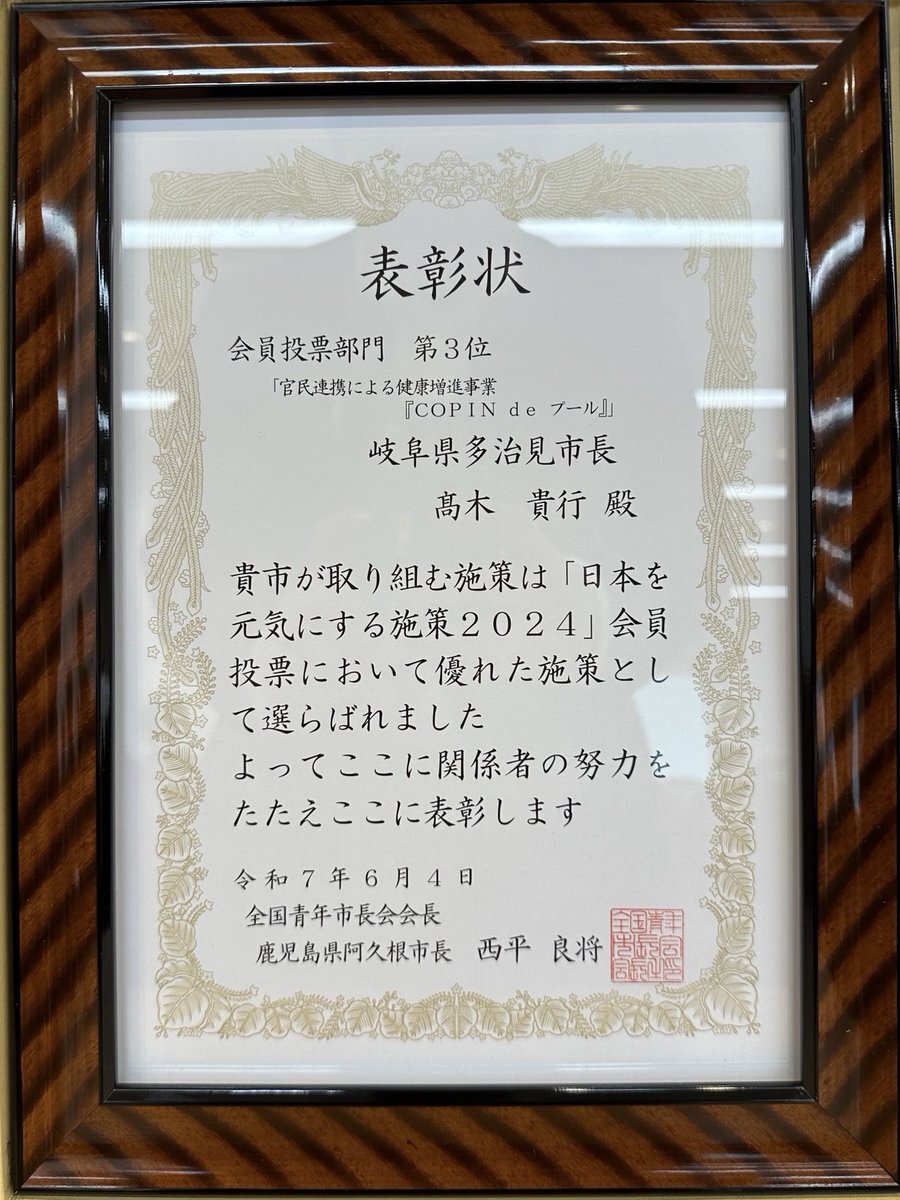 表彰状
会員投票部門　第３位
「官民連携による健康増進事業
『ＣＯＰＩＮ ｄｅ プール』」
岐阜県多治見市長
髙木　貴行 殿
貴市が取り組む施策は「日本を
元気にする施策２０２４」会員
投票において優れた施策とし
て選らばれました
よってここに関係者の努力を
たたえここに表彰します
令和７年６月４日
全国青年市長会会長
鹿児島県阿久根市長　西平 良将